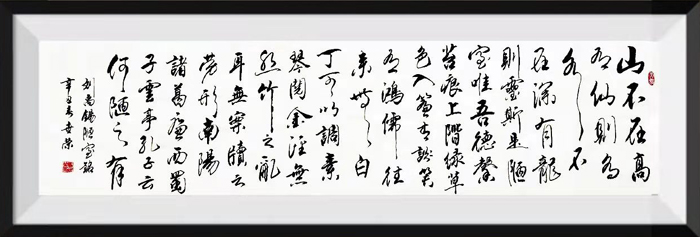 山不在高
有仙則名
水不
在深有龍
則靈斯是陋
室唯吾德馨
苔痕上階綠草
色入簾青談笑
有鴻儒往
來無白
丁可以調素
琴閱金經無
絲竹之亂
耳無案牘之
勞形南陽
諸葛廬西蜀
子雲亭孔子云
何陋之有
刘禹錫陋室銘
辛丑